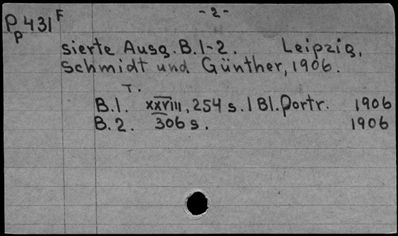 -2-
Pp431F
sierte Ausg. B.1-2. Leipzig,
Schmidt und Günther, 1906.
T.
B.1. XXVIII, 254 s. 1 Bl. Portr. 1906
B.2. 306 s. 1906